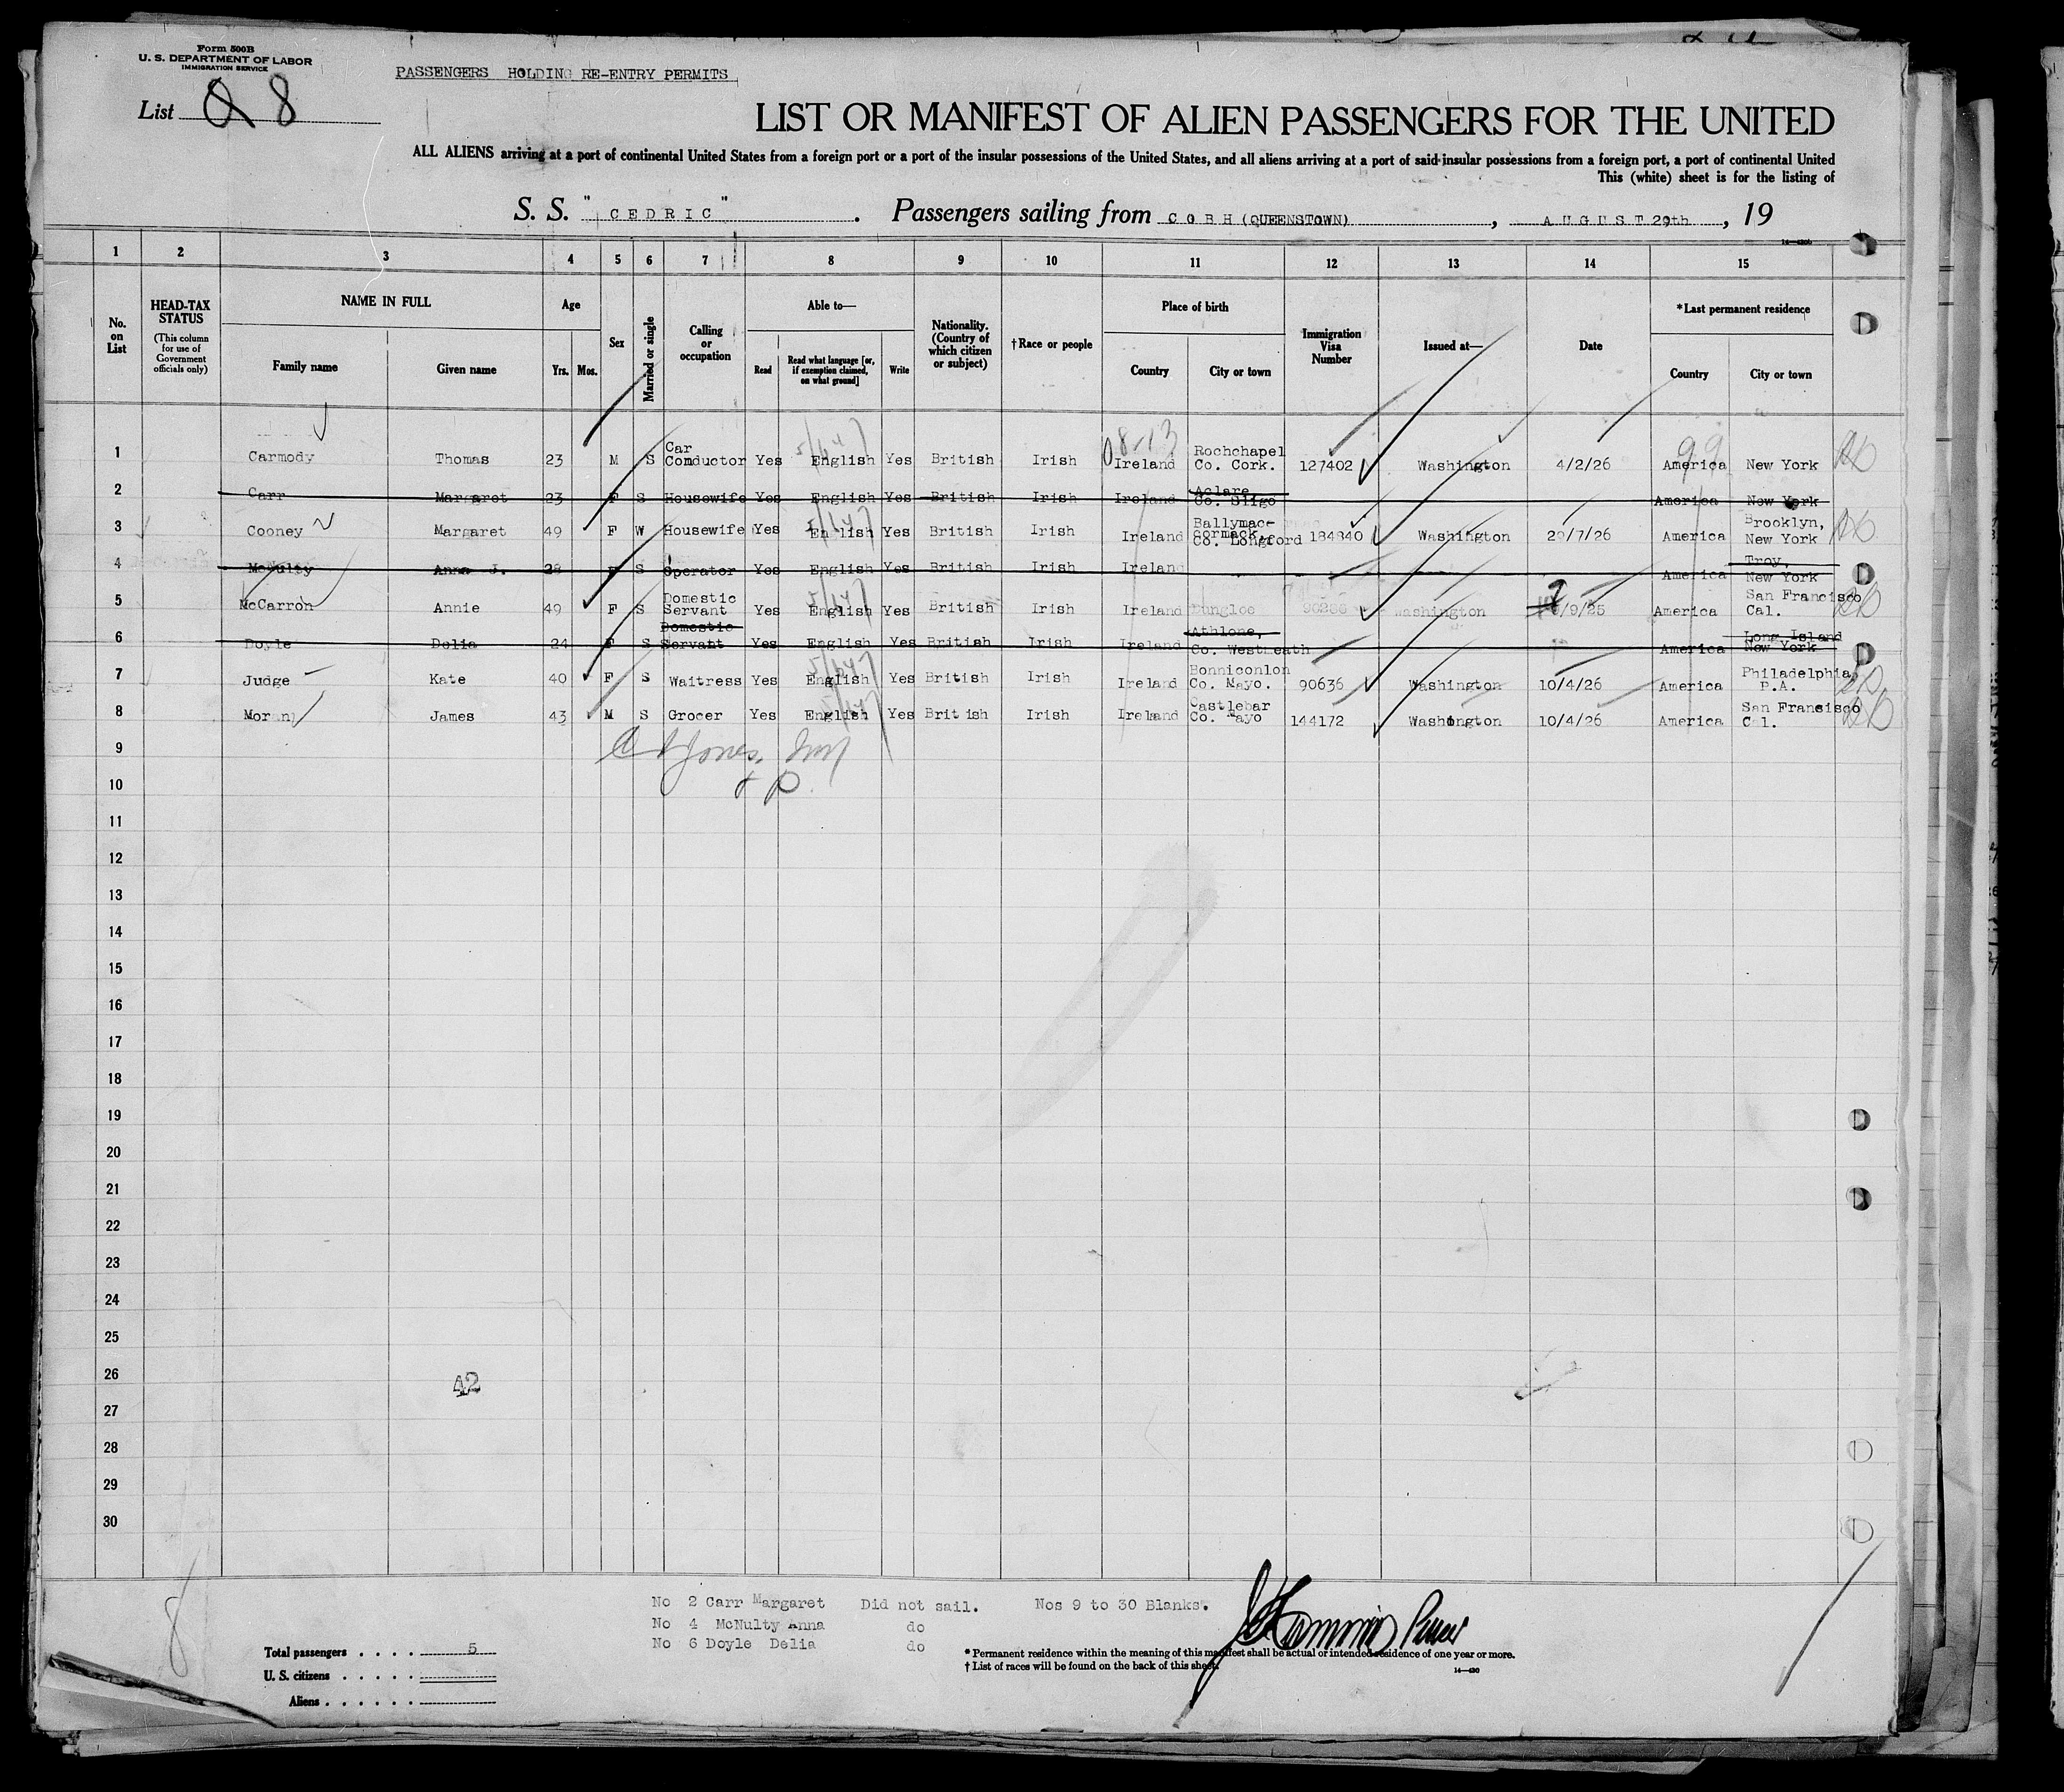 Form 500B
U. S. DEPARTMENT OF LABOR
IMMIGRATION SERVICE
PASSENGERS HOLDING RE-ENTRY PERMITS
List 8
LIST OR MANIFEST OF ALIEN PASSENGERS FOR THE UNITED
ALL ALIENS arriving at a port of continental United States from a foreign port or a port of the insular possessions of the United States, and all aliens arriving at a port of said insular possessions from a foreign port, a port of continental United
This (white) sheet is for the listing of
S. S. "CEDRIC". Passengers sailing from COBH (QUEENSTOWN), AUGUST 29th, 19
1 2 3 4 5 6 7 8 9 10 11 12 13 14 15
No. on List
HEAD-TAX STATUS
(This column for use of Government officials only)
NAME IN FULL
Family name Given name
Age
Yrs. Mos.
Sex
Married or single
Calling or occupation
Able to—
Read Read what language [or, if exemption claimed, on what ground] Write
Nationality. (Country of which citizen or subject)
†Race or people
Place of birth
Country City or town
Immigration Visa Number
Issued at—
Date
*Last permanent residence
Country City or town
1 Carmody Thomas 23 M S Car Conductor Yes English Yes British Irish Ireland Rochchapel Co. Cork. 127402 Washington 4/2/26 America New York
2 Carr Margaret 23 F S Housewife Yes English Yes British Irish Ireland Aclare Co. Sligo America New York
3 Cooney Margaret 49 F W Housewife Yes English Yes British Irish Ireland Ballymac-cormack, Co. Longford 184840 Washington 29/7/26 America Brooklyn, New York
4 McNulty Anna J. 28 F S Operator Yes English Yes British Irish Ireland America Troy, New York
5 McCarron Annie 49 F S Domestic Servant Yes English Yes British Irish Ireland Dungloe 90286 Washington /9/25 America San Francisco Cal.
6 Doyle Delia 24 F S Domestic Servant Yes English Yes British Irish Ireland Athlone, Co. Westmeath America Long Island New York
7 Judge Kate 40 F S Waitress Yes English Yes British Irish Ireland Bonniconlon Co. Mayo. 90636 Washington 10/4/26 America Philadelphia, P.A.
8 Moran James 43 M S Grocer Yes English Yes British Irish Ireland Castlebar Co. Mayo 144172 Washington 10/4/26 America San Francisco Cal.
9
10
11
12
13
14
15
16
17
18
19
20
21
22
23
24
25
26
42
27
28
29
30
No 2 Carr Margaret Did not sail. Nos 9 to 30 Blanks.
No 4 McNulty Anna do
No 6 Doyle Delia do
Total passengers . . . . 5
U. S. citizens . . . . .
Aliens . . . . . .
* Permanent residence within the meaning of this manifest shall be actual or intended residence of one year or more.
† List of races will be found on the back of this sheet.